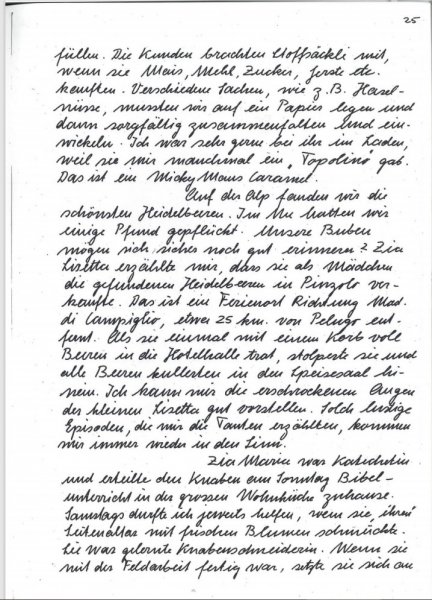 25
füllen. Die Kunden brachten Stoffsäckli mit,
wenn sie Mais, Mehl, Zucker, Gerste etc.
kauften. Verschiedene Sachen, wie z.B. Hasel-
nüsse, mussten wir auf ein Papier legen und
dann sorgfältig zusammenfalten und ein-
wickeln. Ich war sehr gerne bei ihr im Laden,
weil sie mir manchmal ein „Topolino" gab.
Das ist ein Micky Maus Caramel.
Auf der Alp fanden wir die
schönsten Heidelbeeren. Im Nu hatten wir
einige Pfund gepflückt. Unsere Buben
mögen sich sicher noch gut erinnern? Zia
Lisetta erzählte mir, dass sie als Mädchen
die gefundenen Heidelbeeren in Pinzolo ver-
kaufte. Das ist ein Ferienort Richtung Mad.
di Campiglio, etwa 25 km. von Pelugo ent-
fernt. Als sie einmal mit einem Korb voll
Beeren in die Hotelhalle trat, stolperte sie und
alle Beeren kullerten in den Speisesaal hi-
nein. Ich kann mir die erschrockenen Augen
der kleinen Lisetta gut vorstellen. Solch lustige
Episoden, die mir die Tanten erzählten, kommen
mir immer wieder in den Sinn.
Zia Maria war Katechetin
und erteilte den Knaben am Sonntag Bibel-
unterricht in der grossen Wohnküche zuhause.
Samstags durfte ich jeweils helfen, wenn sie „ihren"
Seitenaltar mit frischen Blumen schmückte.
Sie war gelernte Knabenschneiderin. Wenn sie
mit der Feldarbeit fertig war, setzte sie sich an